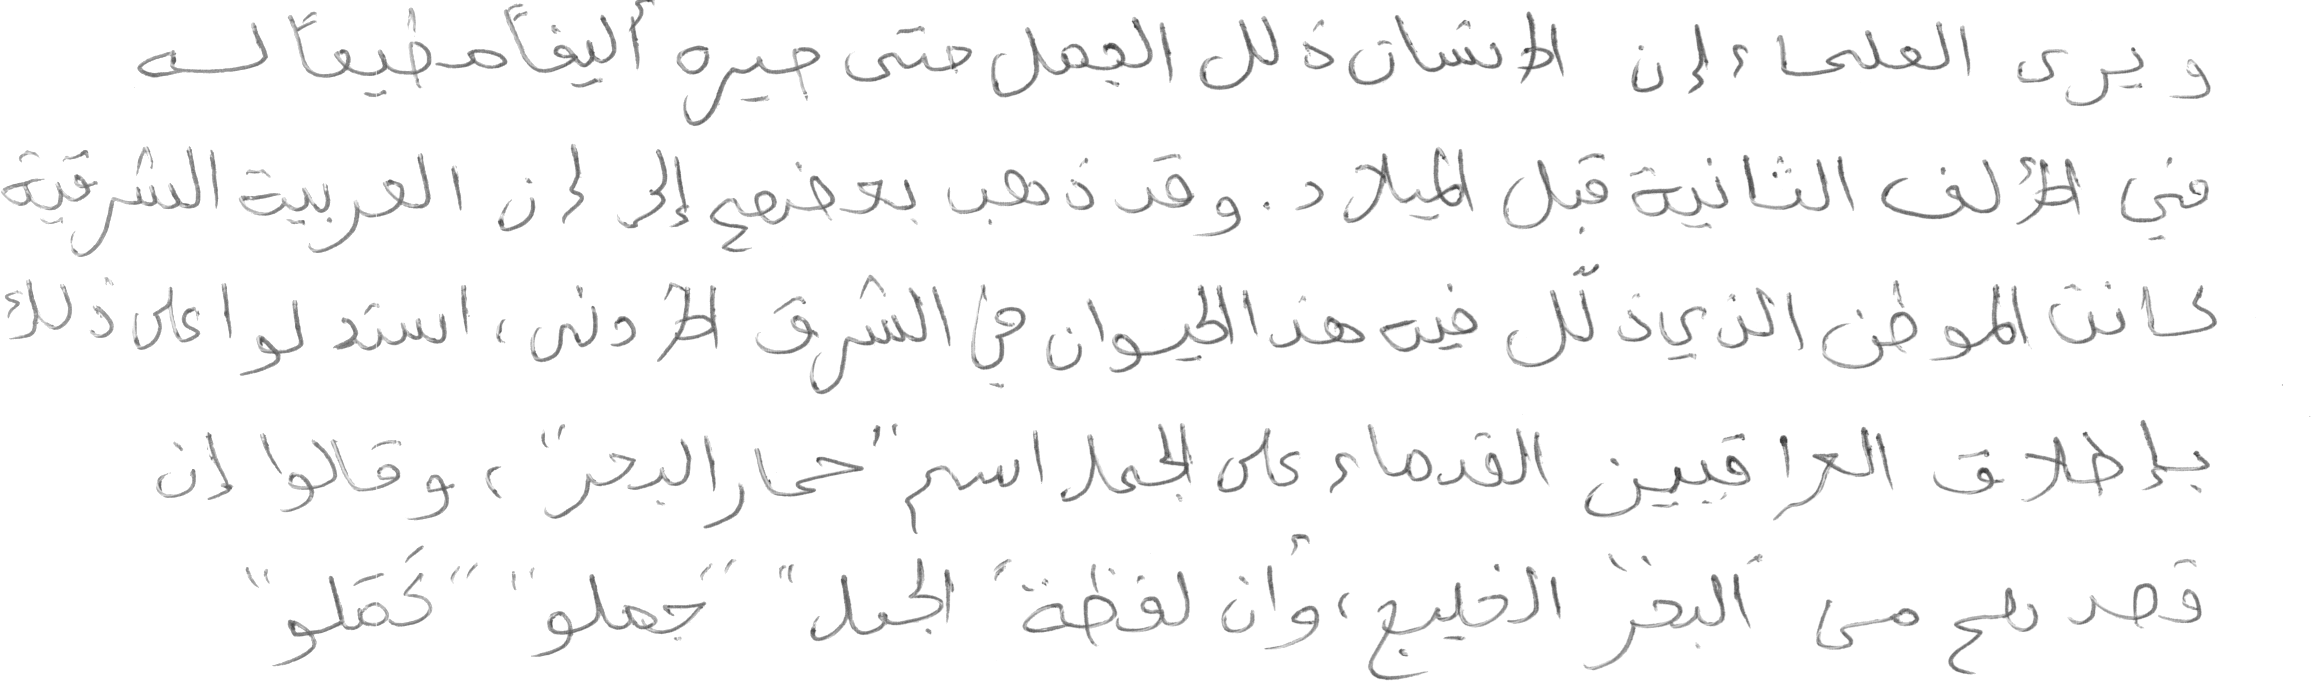 ويرى العلماء إن الإنسان ذلل الجمل حتى صيره أليفاً مطيعاً له
في الألف الثانية قبل الميلاد. وقد ذهب بعضهم إلى إن العربية الشرقية
كانت الموطن الذي ذلّل فيه هذا الحيوان في الشرق الأدنى، استدلوا على ذلك
بإطلاق العراقيين القدماء على الجمل اسم "حمار البحر"، وقالوا إن
قصدهم من "البحر" الخليج، وأن لفظة "الجمل" "جملو" "كَمَلو"